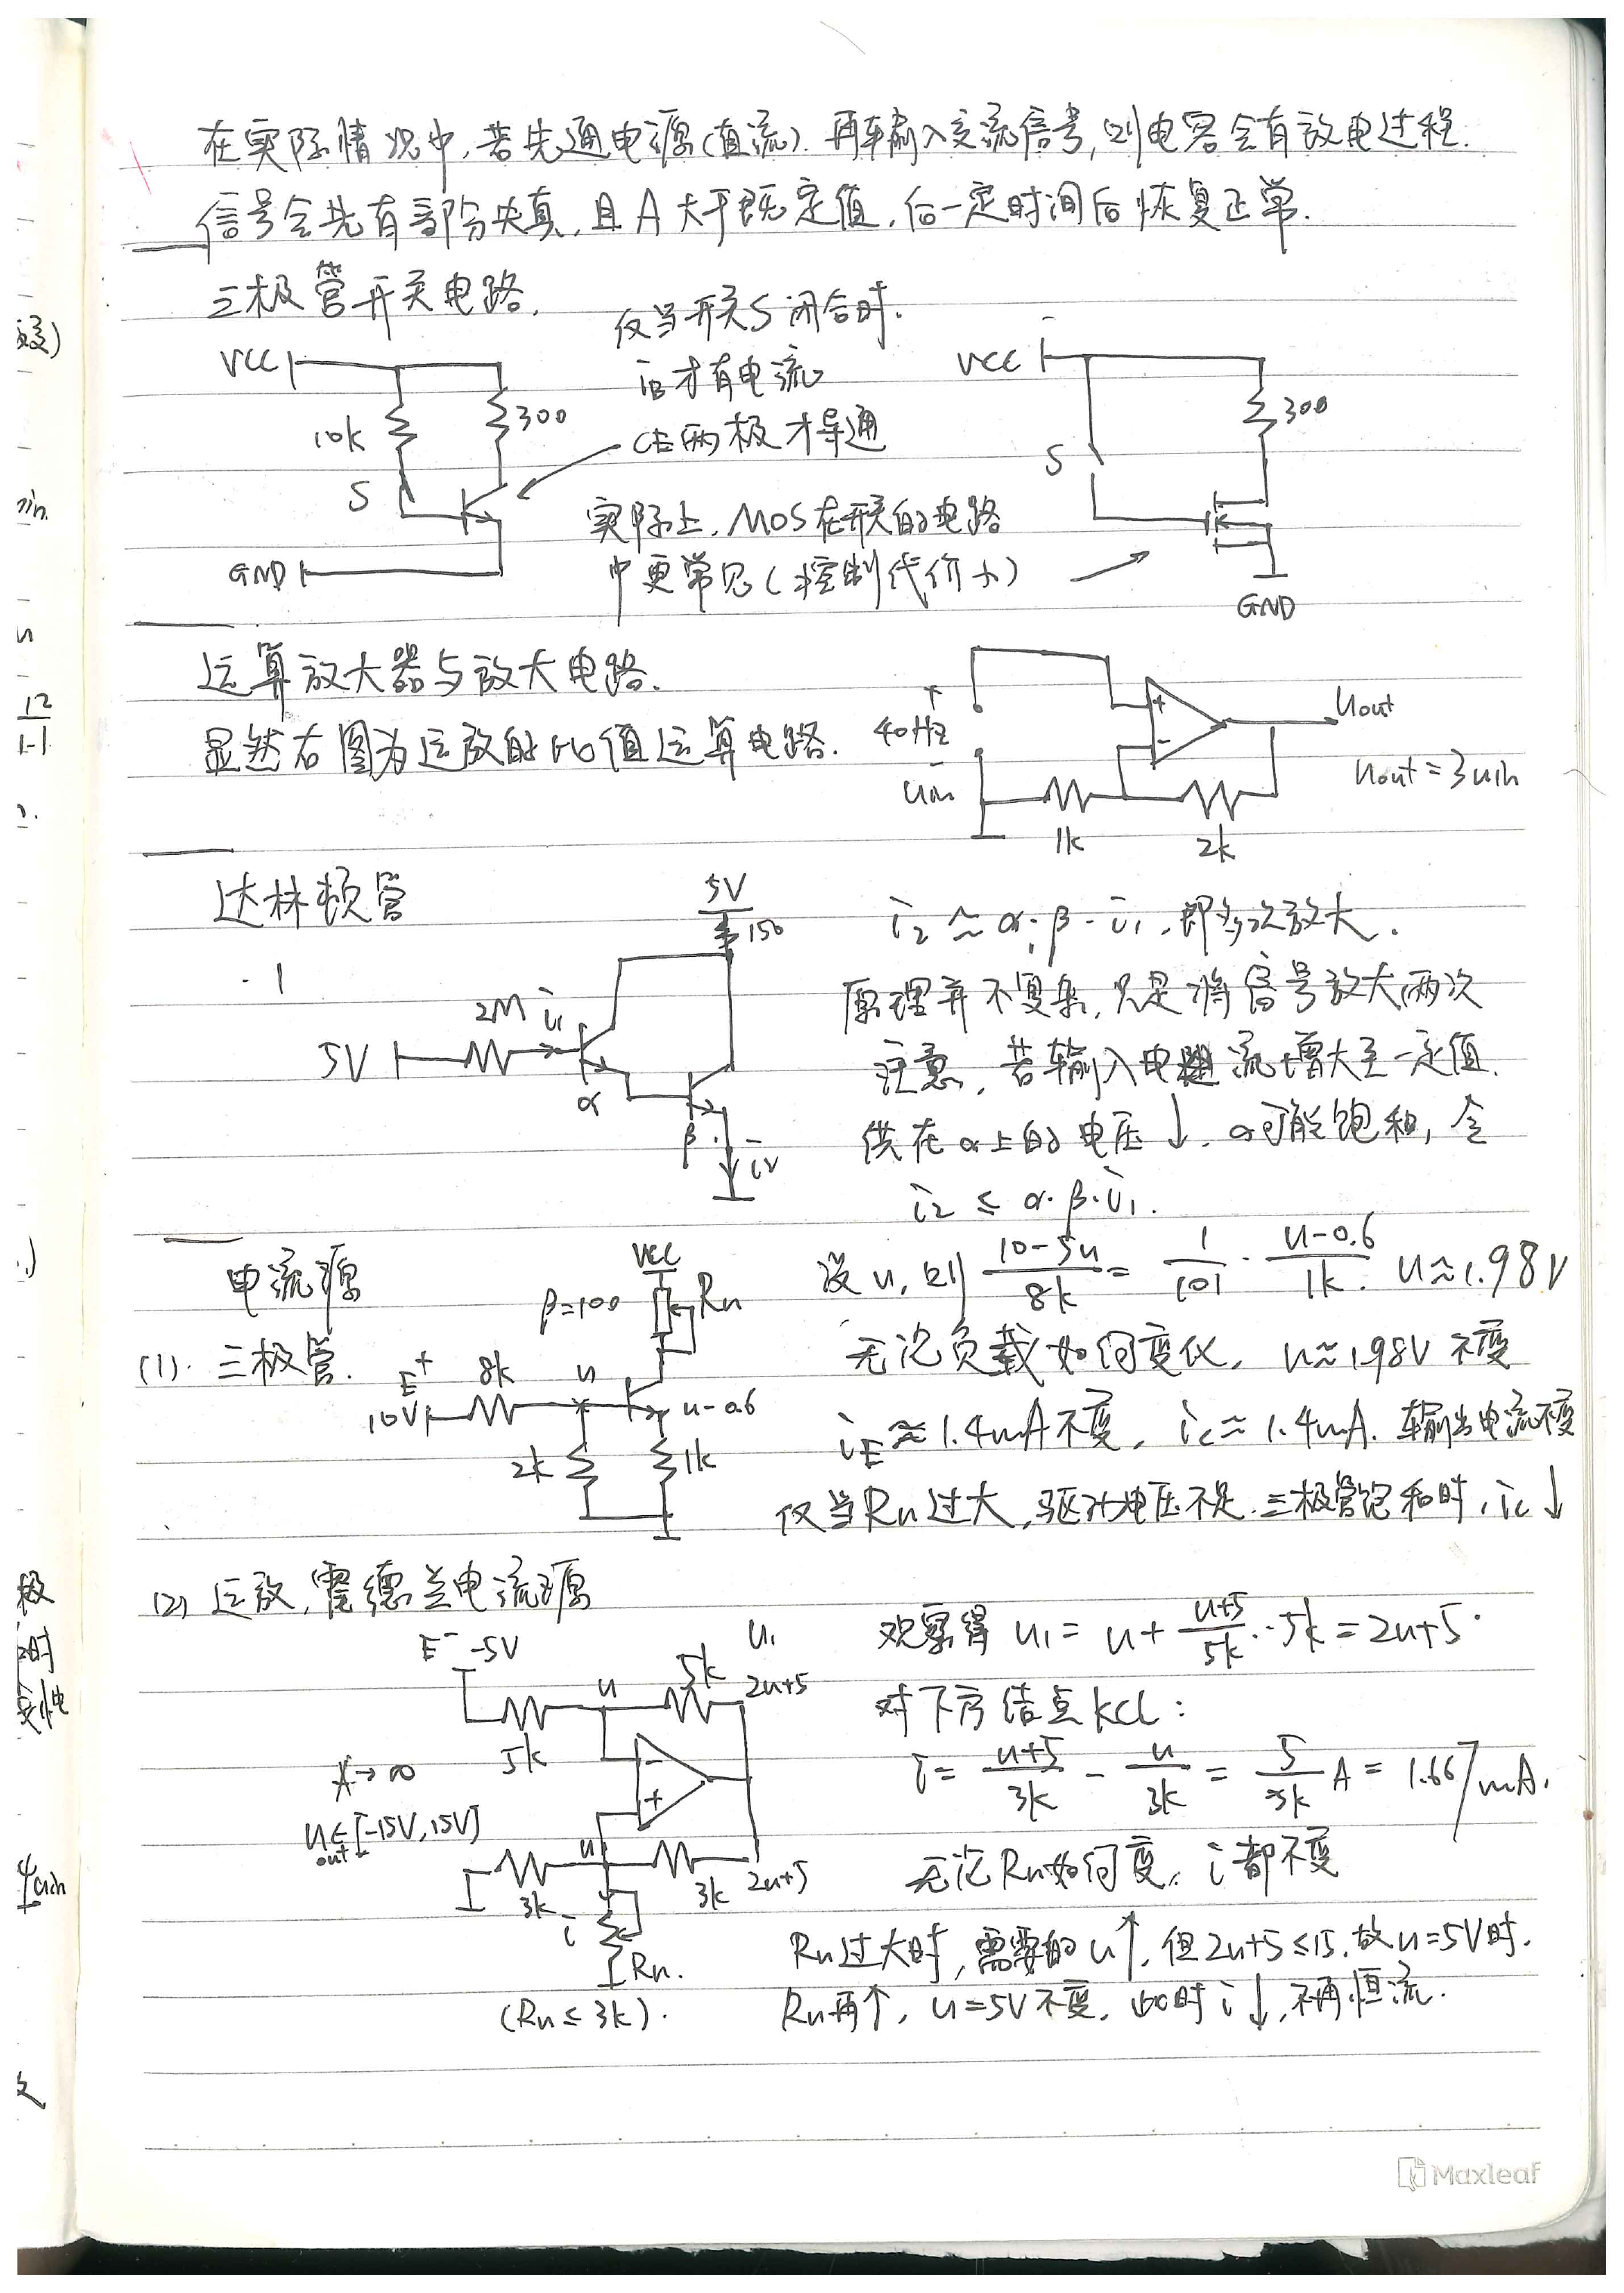 在实际情况中,若先通电源(直流).再输入交流信号,则电容会有放电过程.
信号会先有部分失真,且A大于既定值,后一定时间后恢复正常.
三极管开关电路.
仅当开关S闭合时.
iB才有电流
CE两极才导通
VCC
10k
300
S
GND
实际上,MOS在开关的电路
中更常见(控制代价小)
VCC
300
S
GND
运算放大器与放大电路.
显然右图为运放的比值运算电路.
+
40Hz
-
uin
+
-
uout
1k
2k
uout=3uin
达林顿管
5V
150
2M
i1
5V
α
β
i2
i2≈α·β·i1,即多次放大.
原理并不复杂,只是将信号放大两次
注意,若输入电流增大至一定值.
供在α上的电压↓.α可能饱和,令
i2≤α·β·i1.
电流源
(1).三极管.
VCC
β=100
Rn
E+
10V
8k
u
u-0.6
2k
1k
设u,则 (10-5u)/8k = 1/101 · (u-0.6)/1k. u≈1.98V
无论负载如何变化, u≈1.98V不变
iE≈1.4mA不变, ic≈1.4mA.输出电流不变
仅当Rn过大,驱动电压不足.三极管饱和时,ic↓
(2)运放,霍德兰电流源
E- -5V
5k
u
5k
u1
2u+5
A→∞
uout∈[-15V,15V]
-
+
u
3k
3k
2u+5
i
Rn.
(Rn≤3k).
观察得 u1=u+(u+5)/5k·5k=2u+5.
对下方结点KCL:
i=(u+5)/3k - u/3k = 5/3k A = 1.667mA.
无论Rn如何变,i都不变
Rn过大时,需要的u↑,但2u+5≤15.故u=5V时.
Rn再个,u=5V不变,此时i↓,不再恒流.
极
时
12
1-1
min
Maxleaf